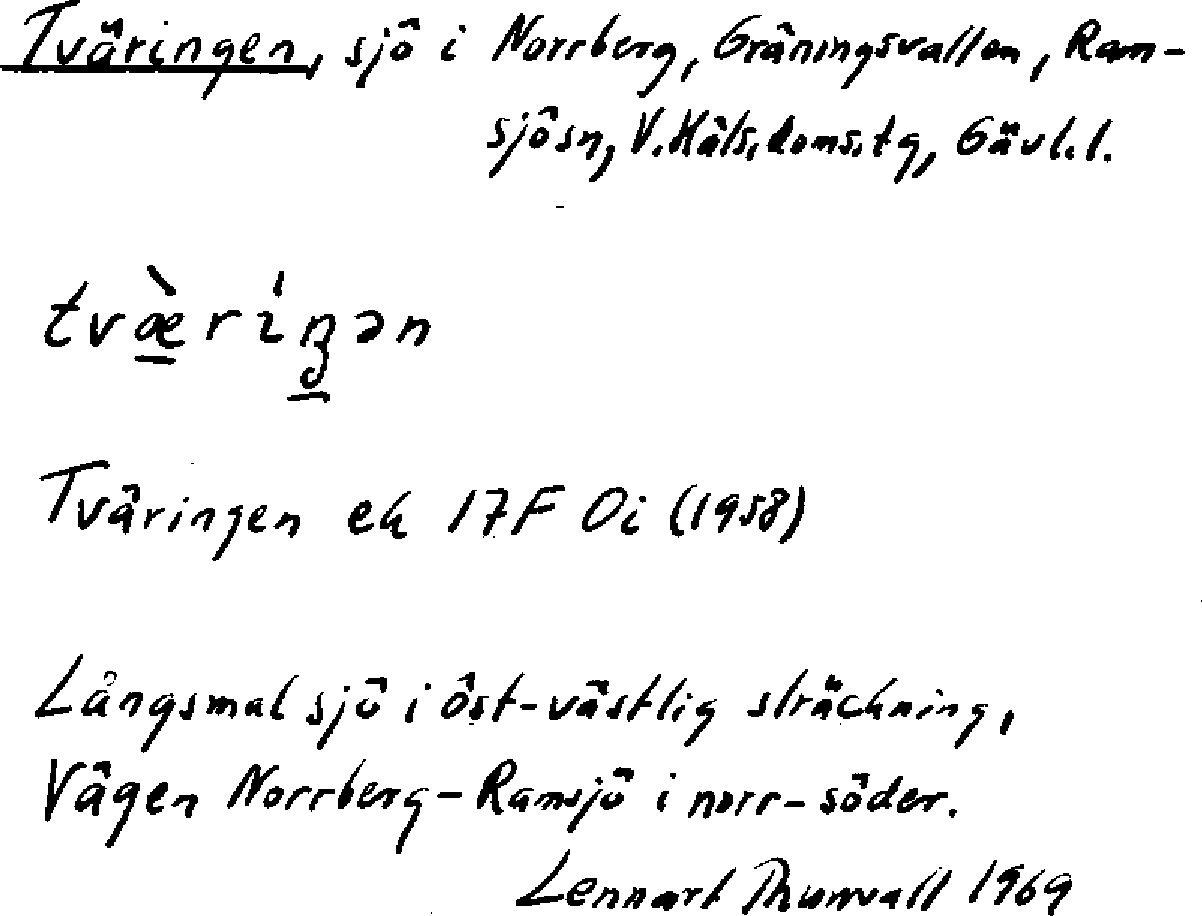 Tväringen, sjö i Norrberg, Gräningsvallen, Ram-
sjösn, V.Häls.doms.tg, Gävl.l.
tvæ̀ríŋən
Tväringen ek 17F 0i (1958)
Långsmal sjö i öst-västlig sträckning,
Vägen Norrberg-Ramsjö i norr-söder.
Lennart Thunvall 1969